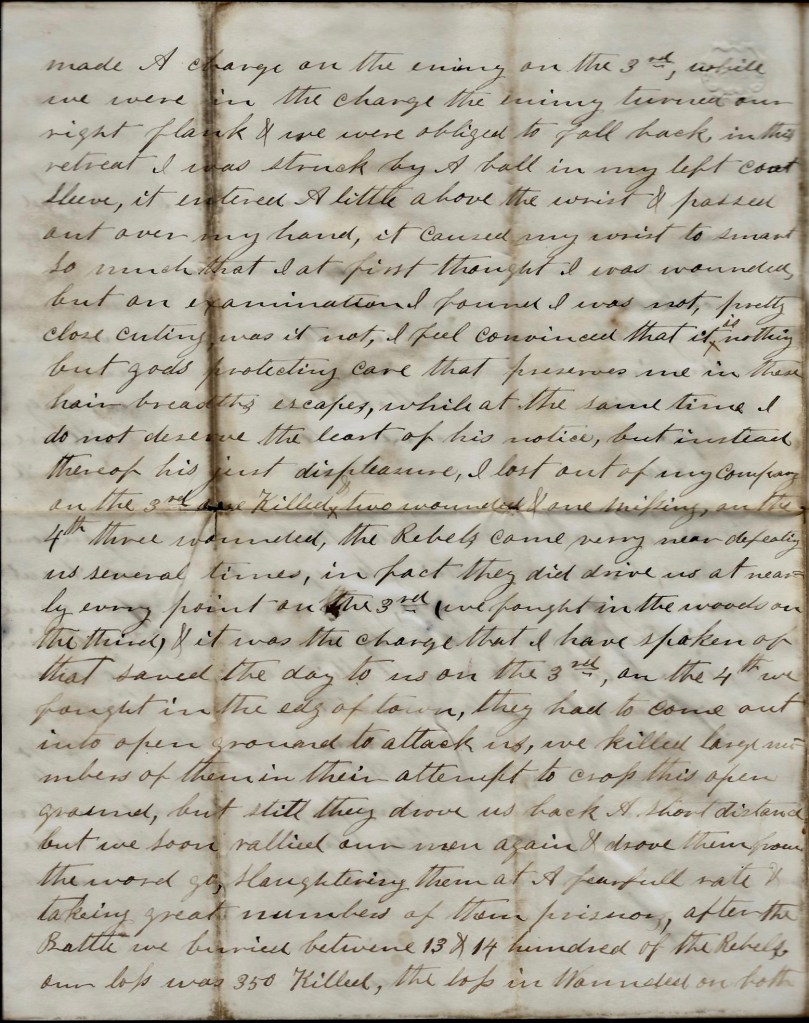 made A charge on the enimy on the 3rd, while
we were in the charge the enimy turned our
right flank & we were obliged to fall back, in this
retreat I was struck by A ball in my left coat
sleeve, it entered A little above the wrist & passed
out over my hand, it caused my wrist to smart
so much that I at first thought I was wounded,
but on examination I found I was not, pretty
close cuting was it not, I feel convinced that it is nothing
but gods protecting care that preserves me in these
hair breadths escapes, while at the same time I
do not deserve the least of his notice, but instead
thereof his just displeasure, I lost out of my company
on the 3rd one Killed, & two wounded & one missing, on the
4th three wounded, the Rebels came verry near defeating
us several times, in fact they did drive us at near=
ly evry point on the 3rd, we fought in the woods on
the third, & it was the charge that I have spoken of
that saved the day to us on the 3rd, on the 4th we
fought in the edge of town, they had to come out
into open ground to attack us, we killed large nu-
mbers of them in their attempt to cross this open
ground, but still they drove us back A short distance
but we soon rallied our men again & drove them from
the word go, slaughtering them at A fearfull rate &
taking great numbers of them prisnors, after the
Battle we buried betwene 13 & 14 hundred of the Rebels
our loss was 350 Killed, the loss in Wounded on both